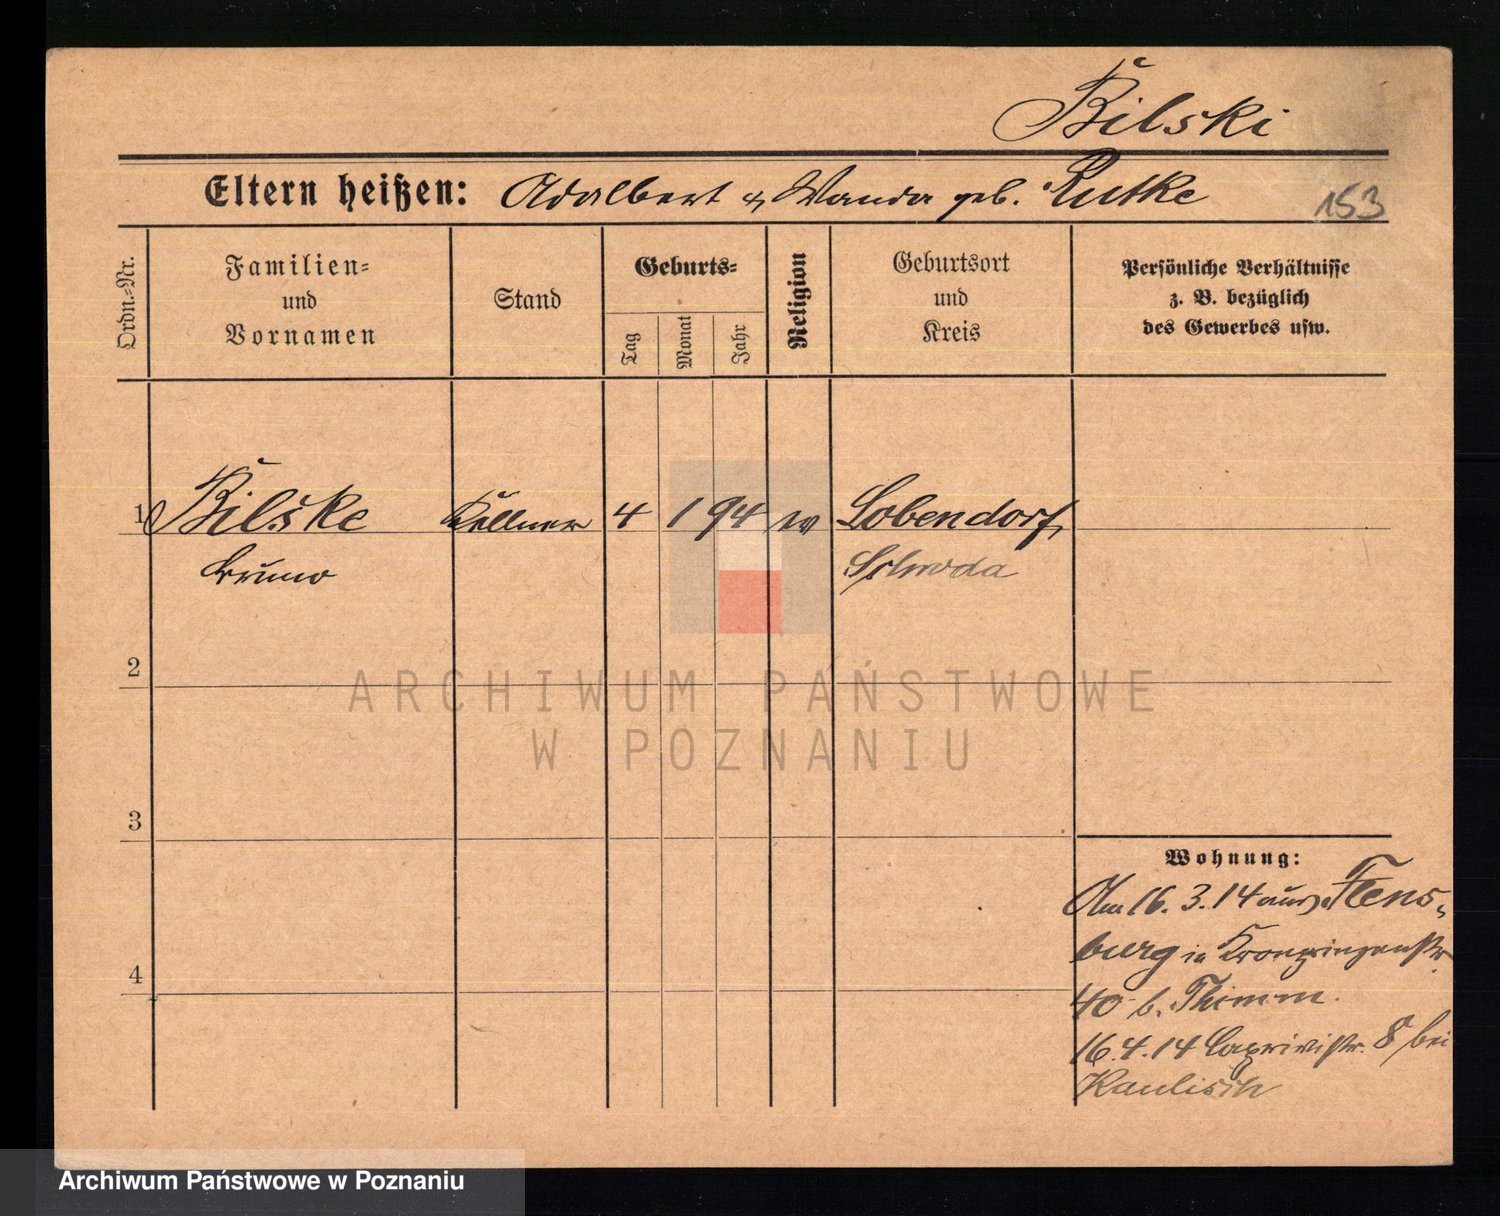 Bilski
Eltern heißen: Adalbert & Wanda geb. Rutke
153
Ordn.-Nr.
Familien-
und
Vornamen
Stand
Geburts-
Tag
Monat
Jahr
Religion
Geburtsort
und
Kreis
Persönliche Verhältnisse
z. B. bezüglich
des Gewerbes usw.
1 Bilske Kellner 4 1 94 Lobendorf
Bruno Schroda
2
ARCHIWUM PAŃSTWOWE
W POZNANIU
3
Wohnung:
Am 16. 3. 14 aus Flens-
burg in Kronprinzenstr.
4
40 b. Thimm.
16. 4. 14 Caprivistr. 8 bei
Kaulisch
Archiwum Państwowe w Poznaniu